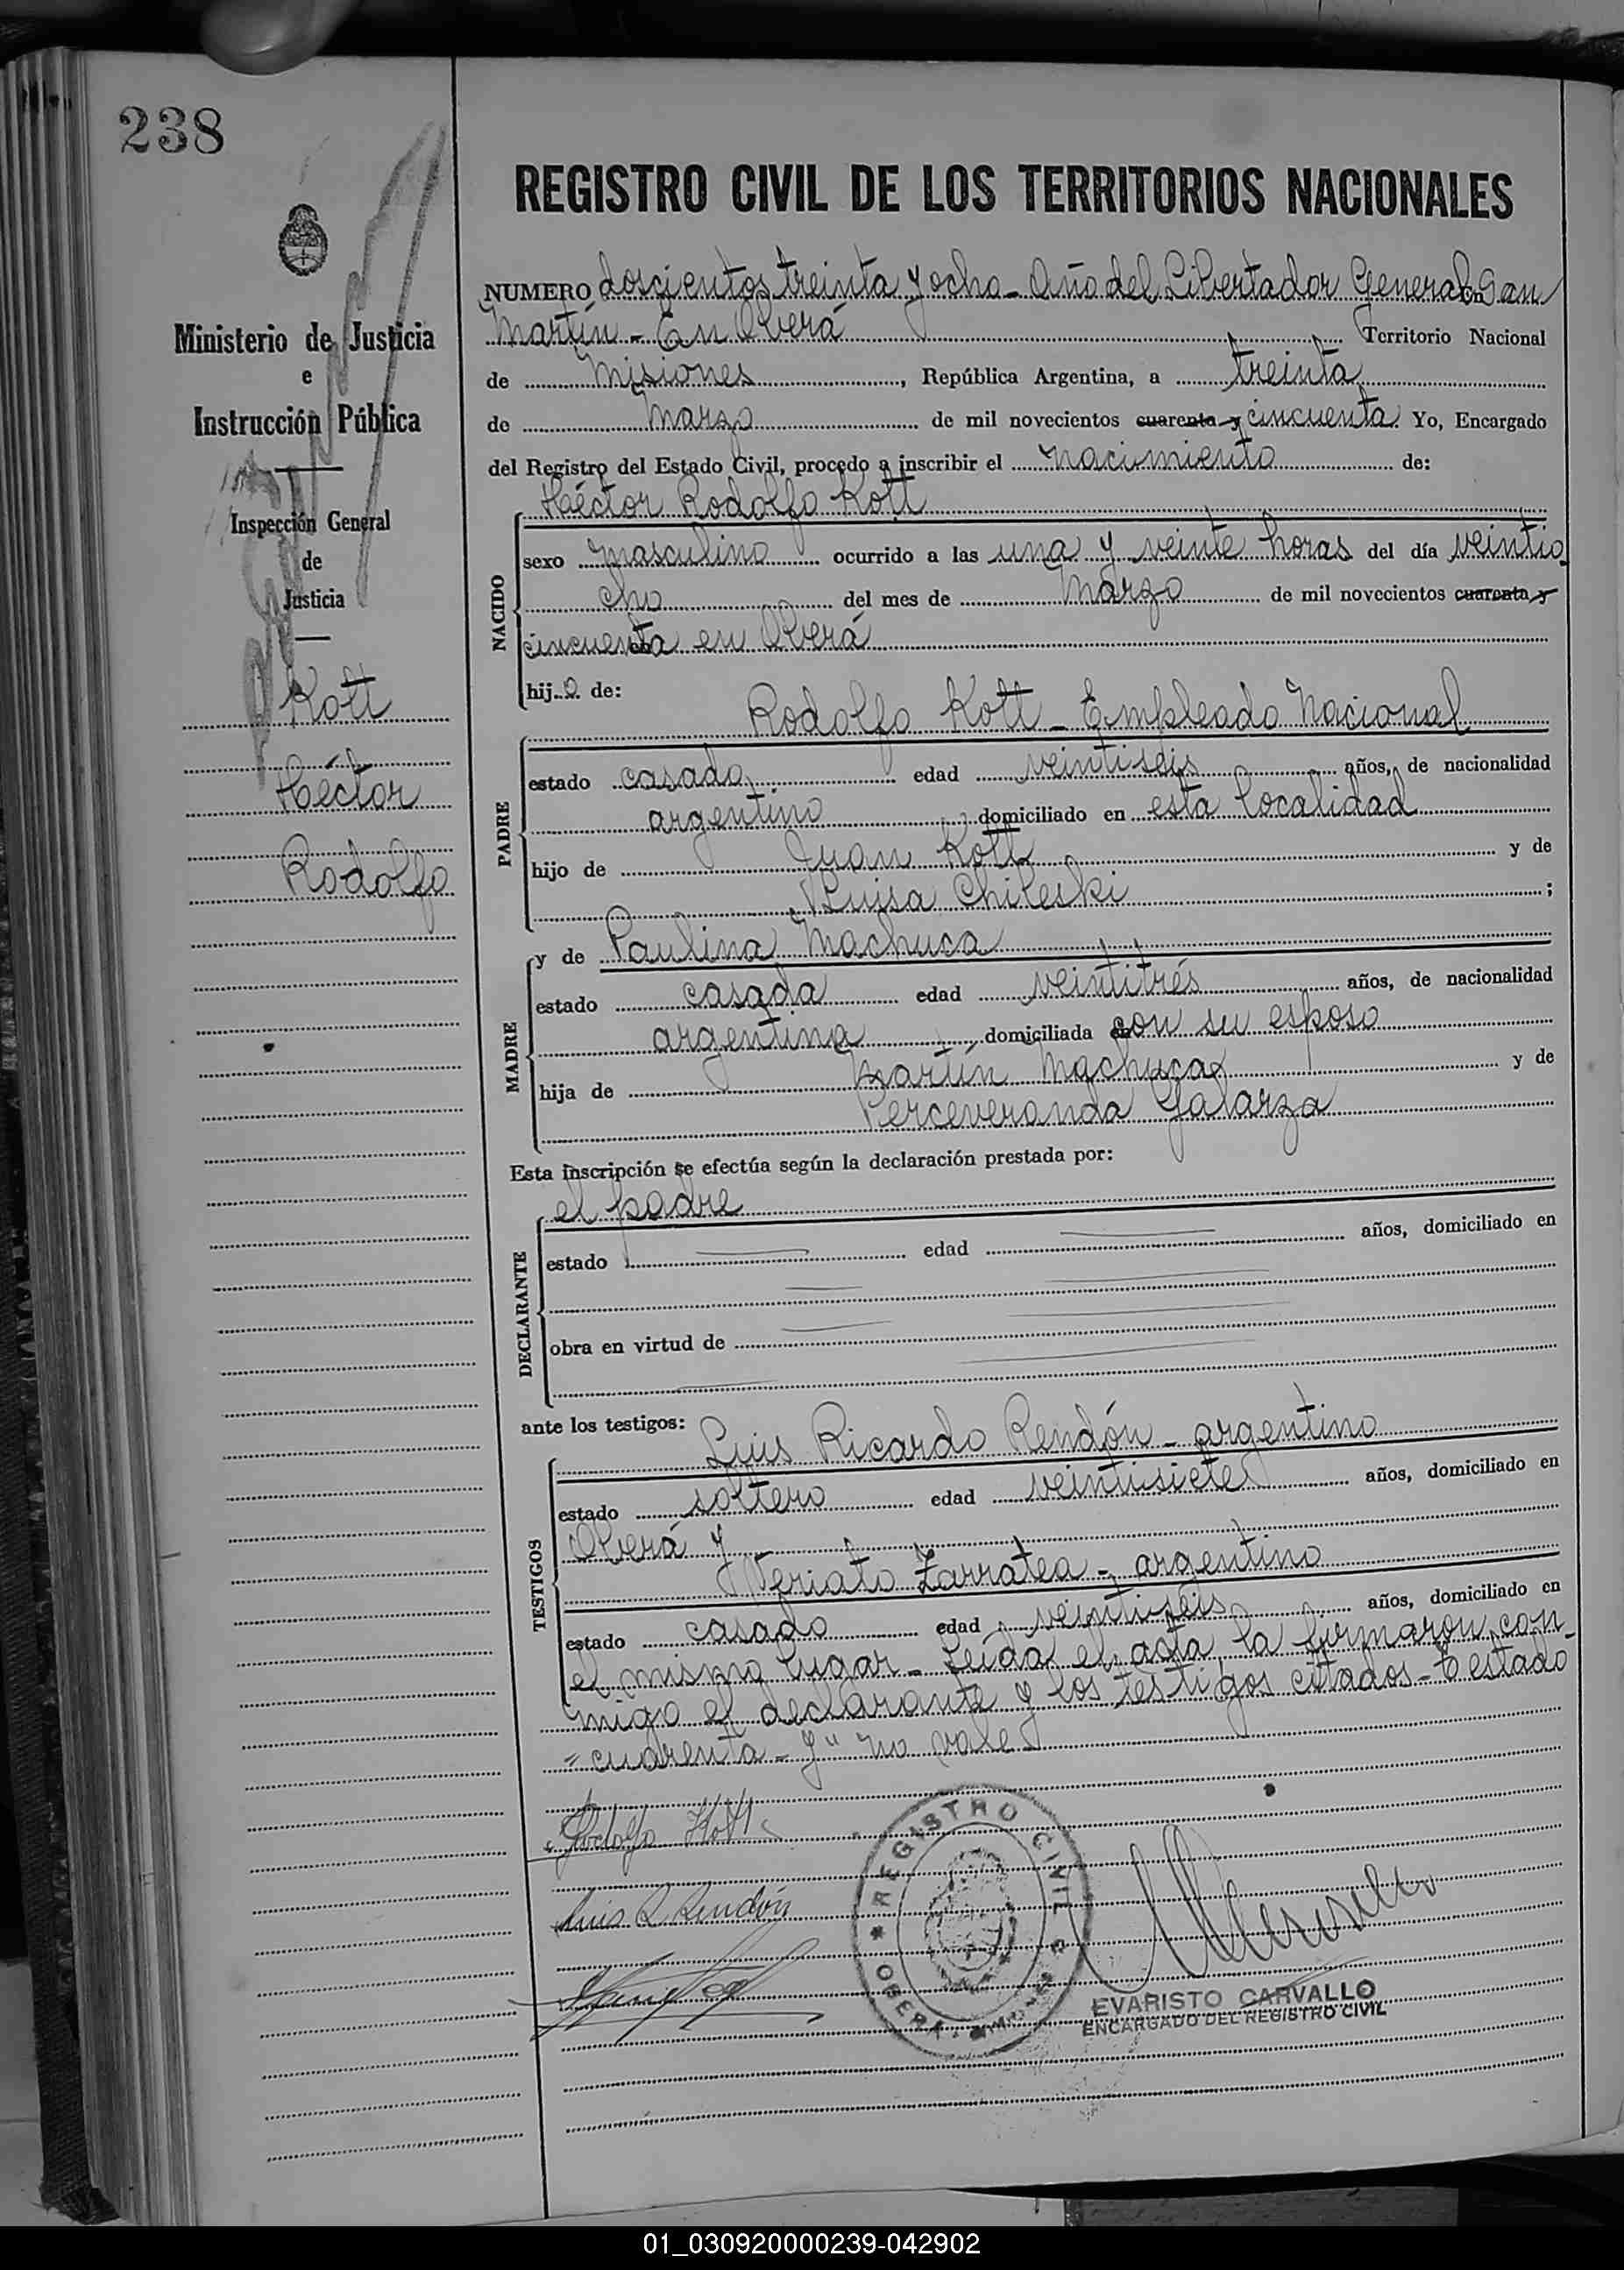 238
REGISTRO CIVIL DE LOS TERRITORIOS NACIONALES
Ministerio de Justicia
e
Instrucción Pública
Inspección General
de
Justicia
Kott
Héctor
Rodolfo
NUMERO doscientos treinta y ocho - Año del Libertador General San
Martín - En Oberá Territorio Nacional
de Misiones, República Argentina, a treinta
de Marzo de mil novecientos cuarenta y cincuenta Yo, Encargado
del Registro del Estado Civil, procedo a inscribir el nacimiento de:
NACIDO
Héctor Rodolfo Kott
sexo masculino ocurrido a las una y veinte horas del día veintio
cho del mes de Marzo de mil novecientos cuarenta y
cincuenta en Oberá
hijo de:
PADRE
Rodolfo Kott - Empleado Nacional
estado casado edad veintiseis años, de nacionalidad
argentino domiciliado en esta localidad
hijo de Juan Kott y de
Luisa Chileski ;
MADRE
y de Paulina Machuca
estado casada edad veintitrés años, de nacionalidad
argentina domiciliada con su esposo
hija de Martín Machuca y de
Perceveranda Galarza
Esta inscripción se efectúa según la declaración prestada por:
DECLARANTE
el padre
estado edad años, domiciliado en
obra en virtud de
ante los testigos:
TESTIGOS
Luis Ricardo Rendón - argentino
estado soltero edad veintisiete años, domiciliado en
Oberá y
Zarratea - argentino
estado casado edad veintiseis años, domiciliado en
el mismo lugar - Leída el acta, la firmaron con-
migo el declarante y los testigos citados - Testado
"cuarenta - y" no vale
Rodolfo Kott
Luis R Rendón
REGISTRO CIVIL
OBERA
EVARISTO CARVALLO
ENCARGADO DEL REGISTRO CIVIL
01_030920000239-042902